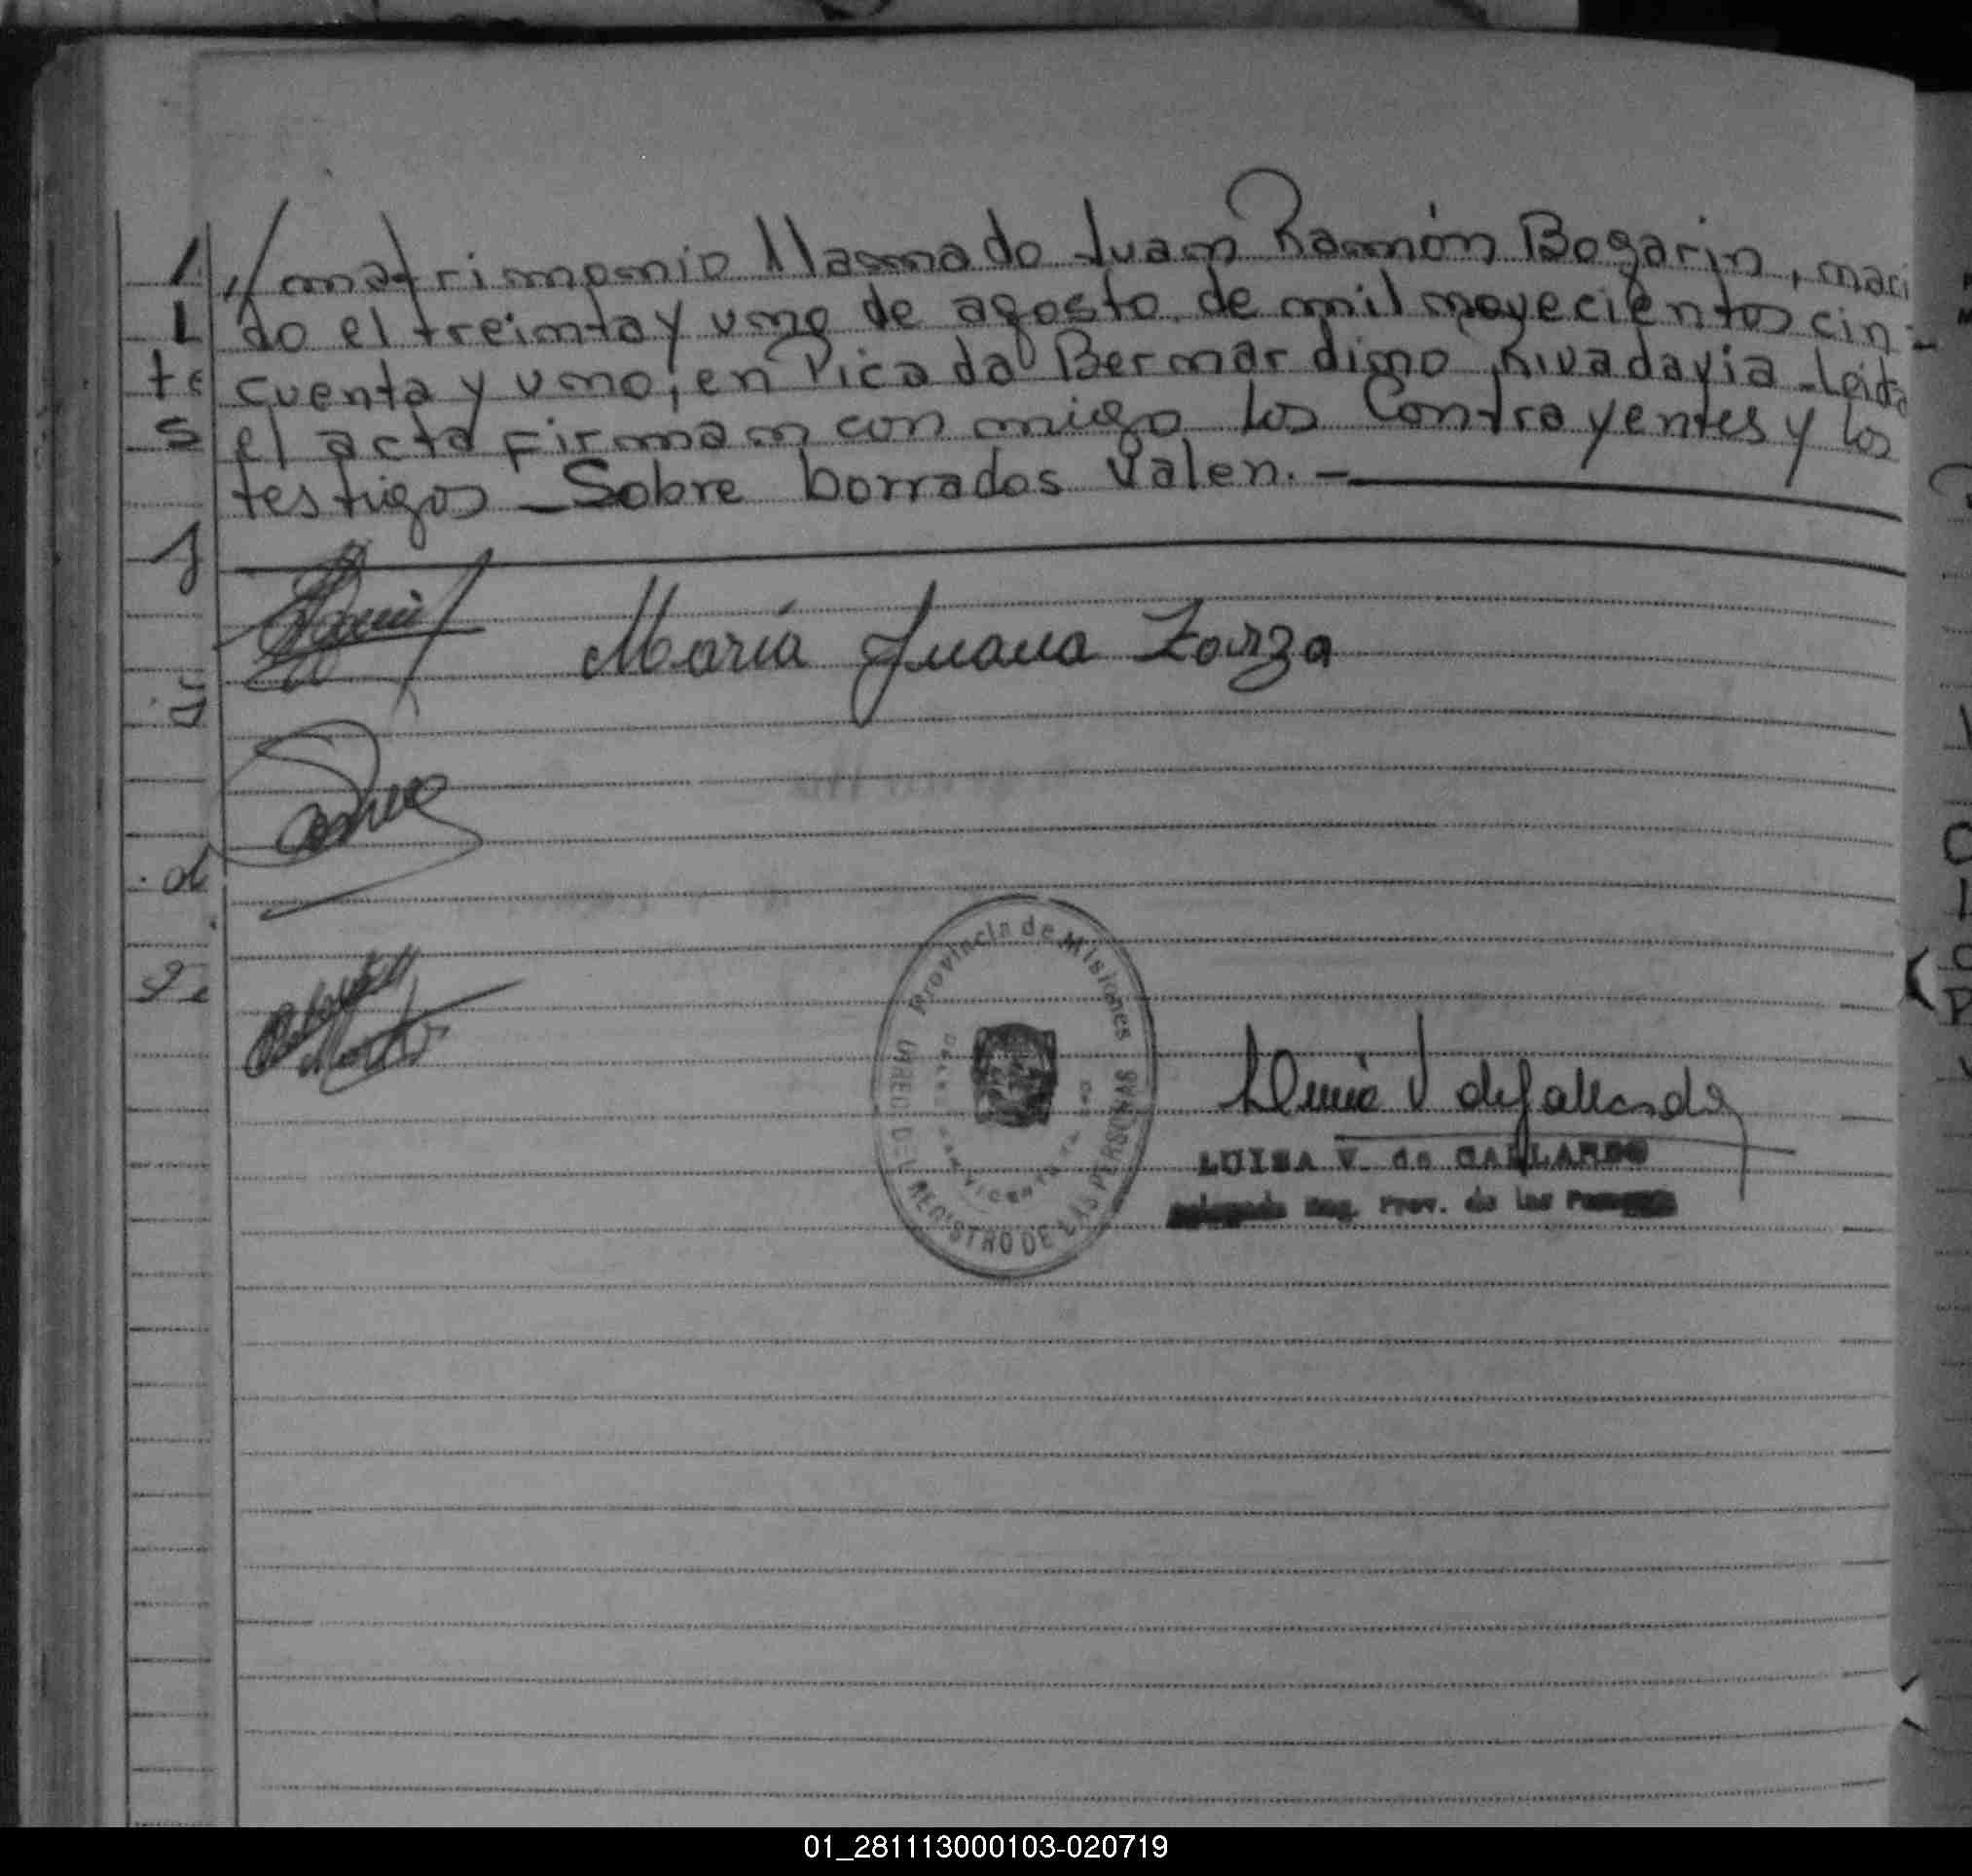 // matrimonio llamado Juan Ramón Bogarin, naci
do el treinta y uno de agosto de mil novecientos cin=
cuenta y uno, en Picada Bernardino Rivadavia - Leida
el acta firman con migo los Contrayentes y los
testigos - Sobre borrados Valen. -
María Juana Zarza
Provincia de Misiones
DEL REGISTRO DE LAS PERSONAS
Luisa V de Gallardo
LUISA V. de GALLARDO
Reg. Prov. de las
01_281113000103-020719